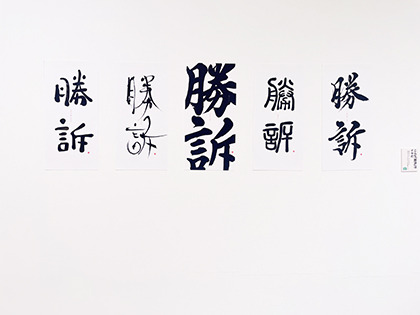 勝訴
勝訴
勝訴
勝訴
勝訴